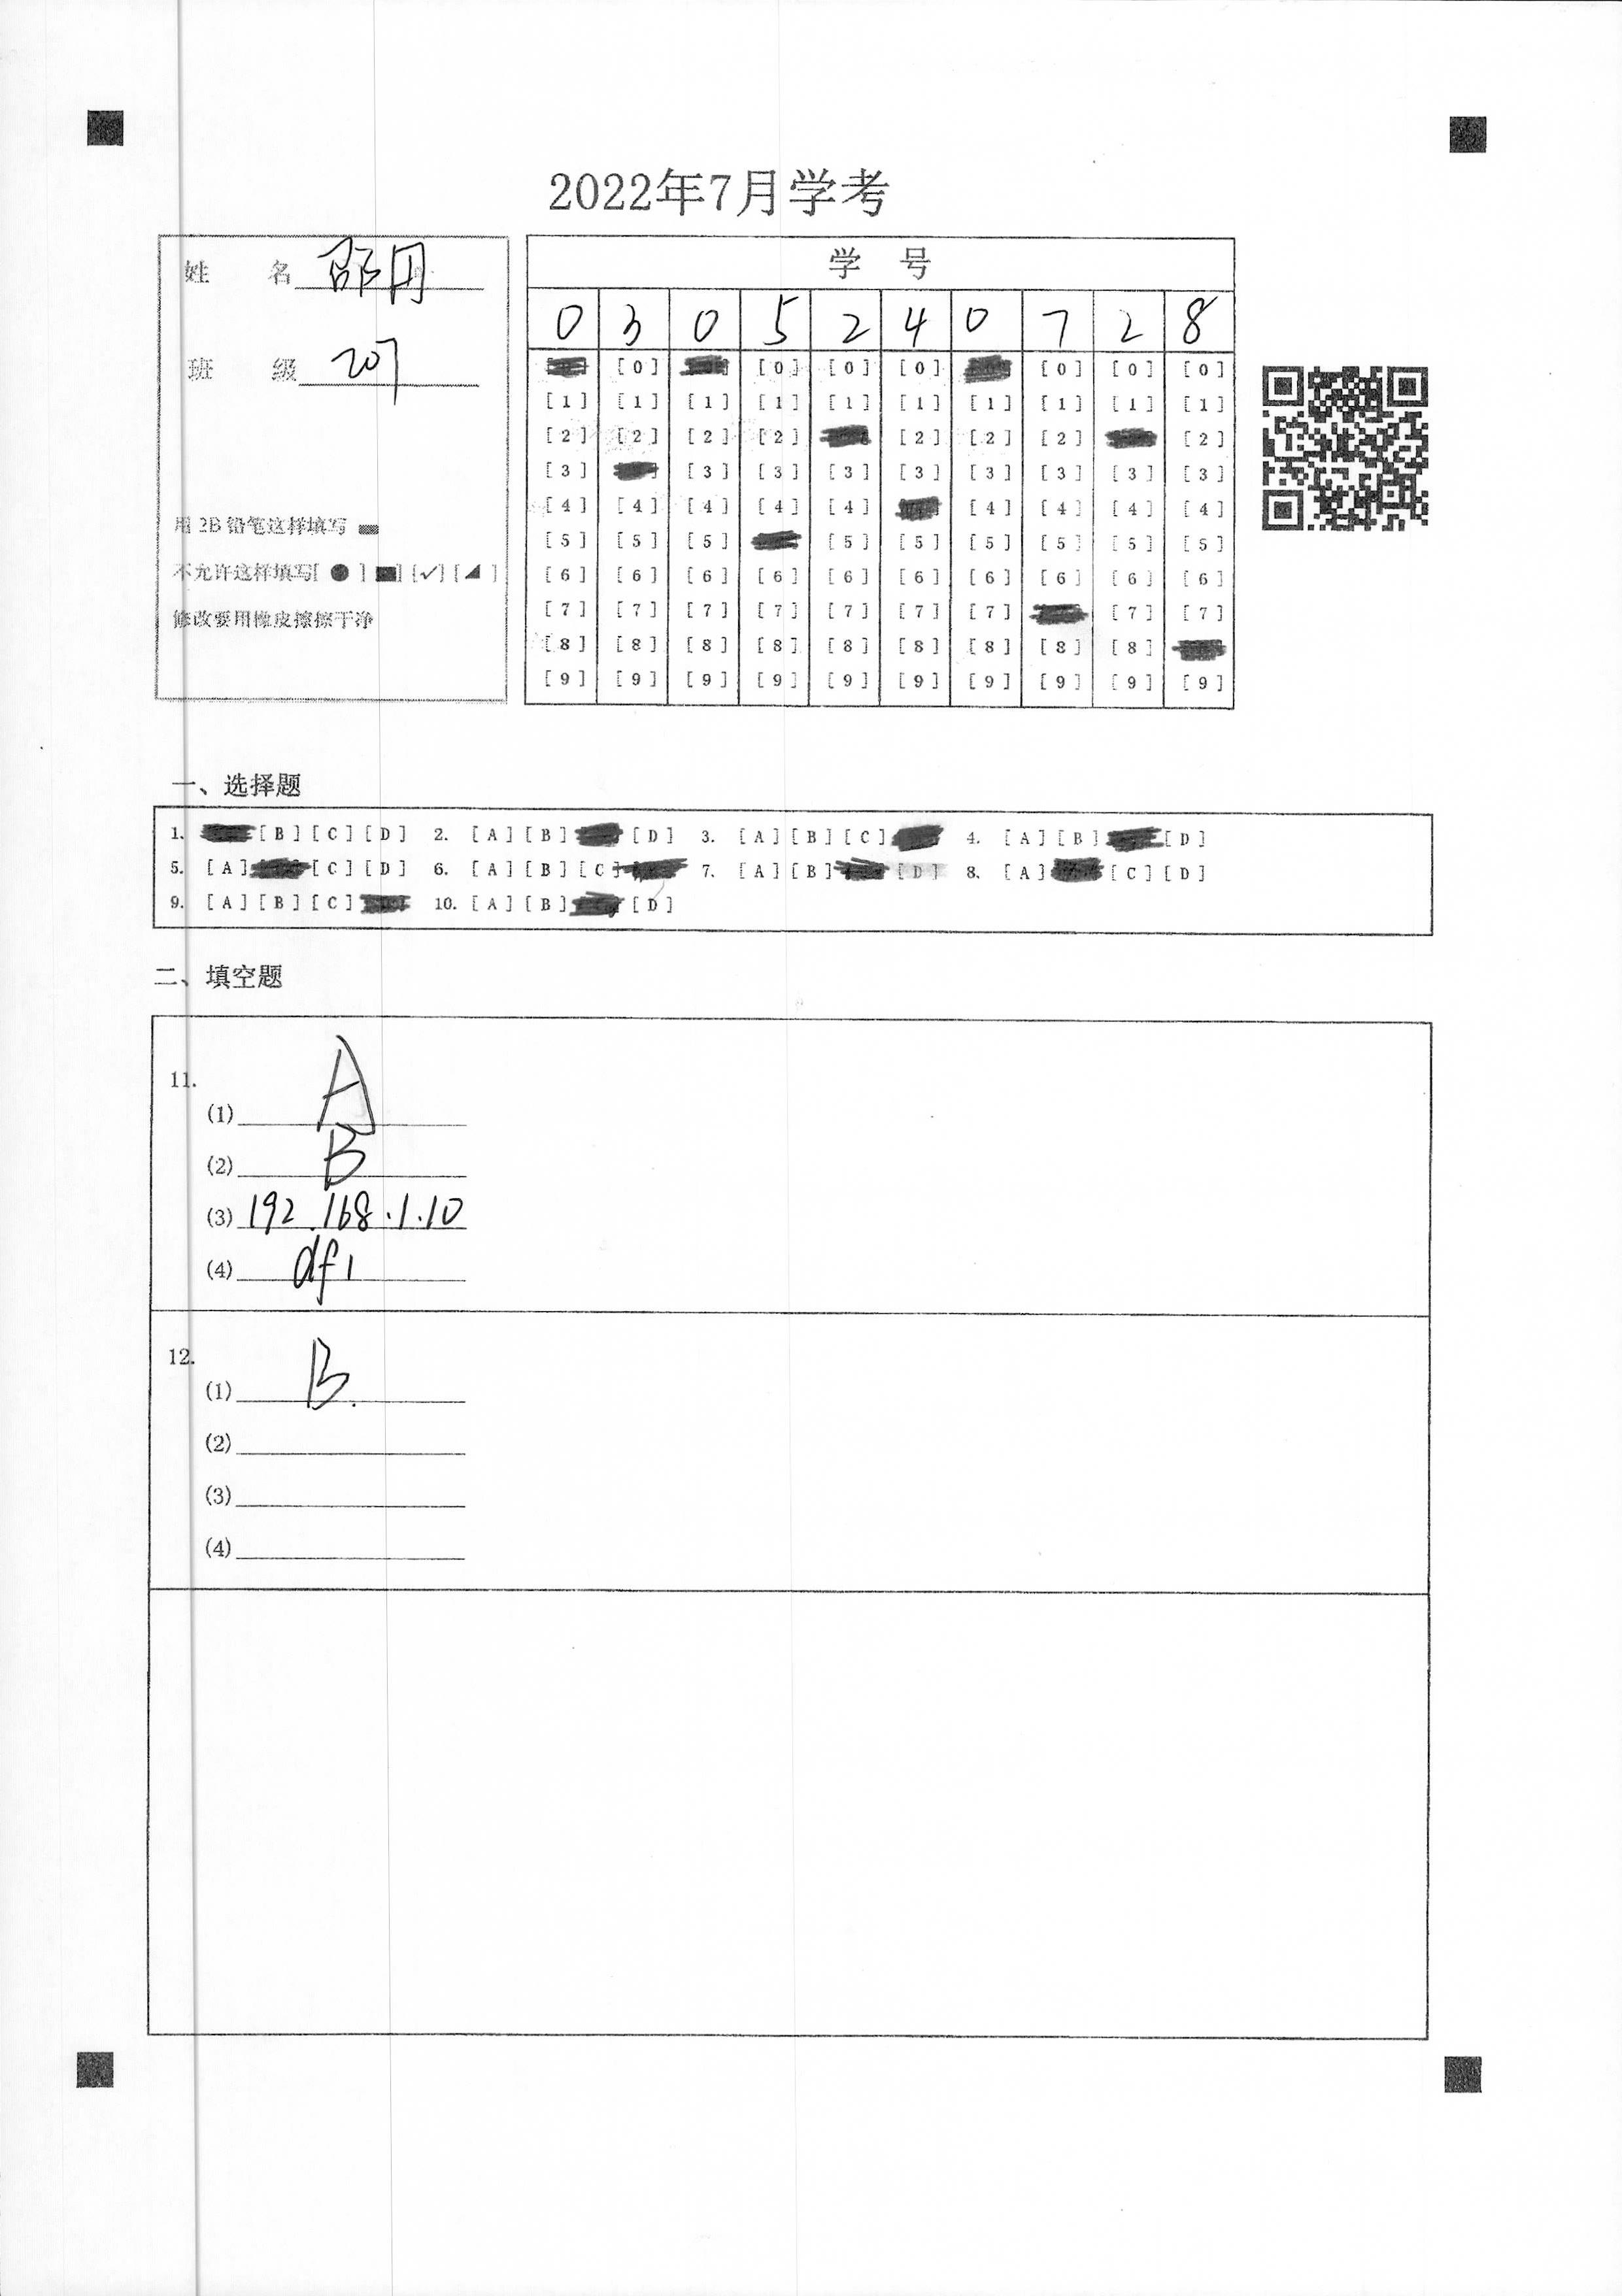 2022年7月学考
姓 名 邵丹
班 级 207
用 2B 铅笔这样填写
不允许这样填写[ ● ] [■] [✓] [◢ ]
修改要用橡皮擦擦干净
学 号
0 3 0 5 2 4 0 7 2 8
[0] [0] [0] [0] [0] [0] [0]
[1] [1] [1] [1] [1] [1] [1] [1] [1] [1]
[2] [2] [2] [2] [2] [2] [2] [2]
[3] [3] [3] [3] [3] [3] [3] [3] [3]
[4] [4] [4] [4] [4] [4] [4] [4] [4]
[5] [5] [5] [5] [5] [5] [5] [5] [5]
[6] [6] [6] [6] [6] [6] [6] [6] [6] [6]
[7] [7] [7] [7] [7] [7] [7] [7] [7]
[8] [8] [8] [8] [8] [8] [8] [8] [8]
[9] [9] [9] [9] [9] [9] [9] [9] [9] [9]
一、选择题
1. [B] [C] [D] 2. [A] [B] [D] 3. [A] [B] [C] 4. [A] [B] [D]
5. [A] [C] [D] 6. [A] [B] [C] 7. [A] [B] [D] 8. [A] [C] [D]
9. [A] [B] [C] 10. [A] [B] [D]
二、填空题
11.
(1) A
(2) B
(3) 192.168.1.10
(4) df1
12.
(1) B.
(2)
(3)
(4)